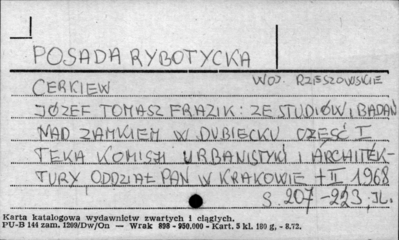 POSADA RYBOTYCKA
CERKIEW WOJ. RZESZOWSKIE
JÓZEF TOMASZ FRAZIK: ZE STUDIÓW I BADAŃ
NAD ZAMKIEM W DUBIECKU CZĘŚĆ I
TEKA KOMISJI URBANISTYKI I ARCHITEK-
TURY ODDZIAŁ PAN W KRAKOWIE t II 1968
S. 207-223, IL.
Karta katalogowa wydawnictw zwartych i ciągłych.
PU-B 144 zam. 1209/Dw/On — Wrak 898 - 950.000 - Kart. 5 kl. 180 g, - 8.72.